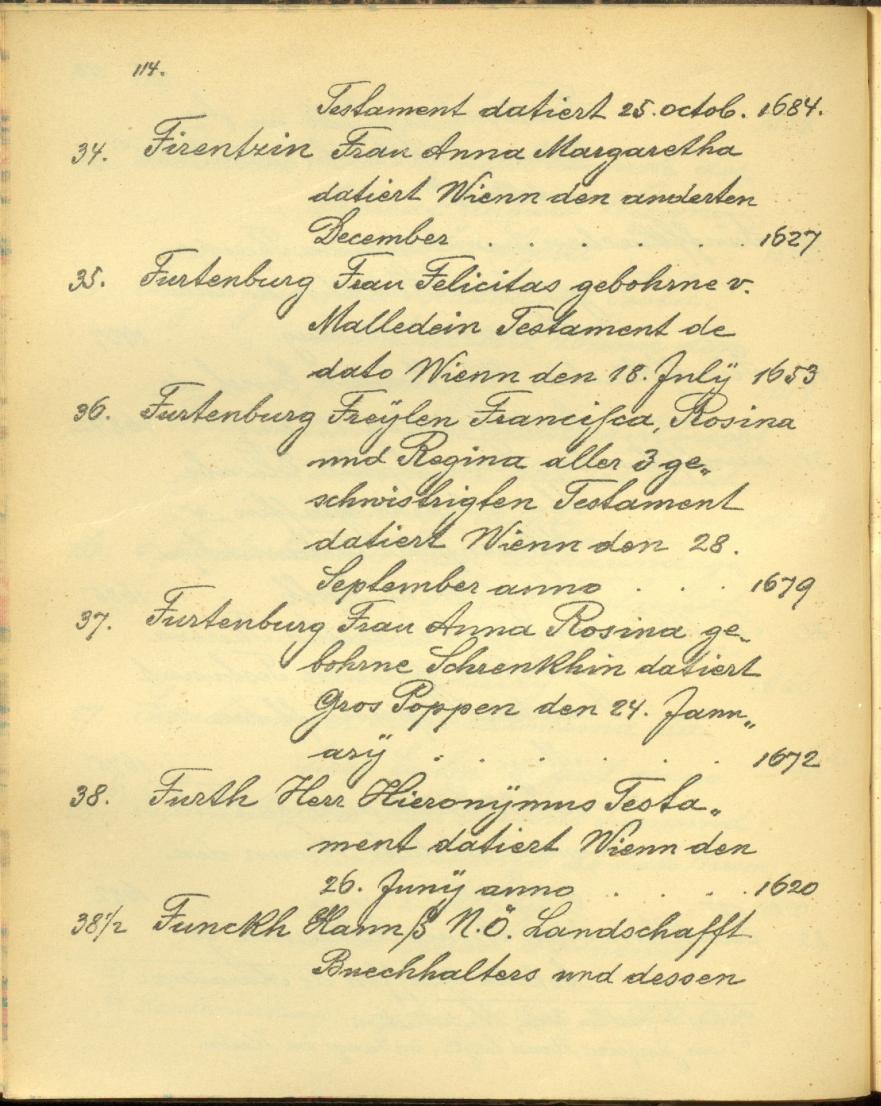 114.
Testament datiert 25. octob. 1684.
34. Firentzin Frau Anna Margaretha
datiert Wienn den anderten
December . . . . . . 1627
35. Furtenburg Frau Felicitas gebohrne v.
Malledein Testament de
dato Wienn den 18. Julÿ 1653
36. Furtenburg Freÿlen Franciſca, Rosina
und Regina aller 3 ge„
schwistrigten Testament
datiert Wienn den 28.
September anno . . . 1679
37. Furtenburg Frau Anna Rosina ge„
bohrne Schrenkhin datiert
Gros Poppen den 24. Janu„
arÿ . . . . . . 1672
38. Furth Herr Hieronÿmus Testa„
ment datiert Wienn den
26. Junÿ anno . . . . 1620
38½ Funckh Hannß N.Ö. Landschafft
Buechhalters und dessen